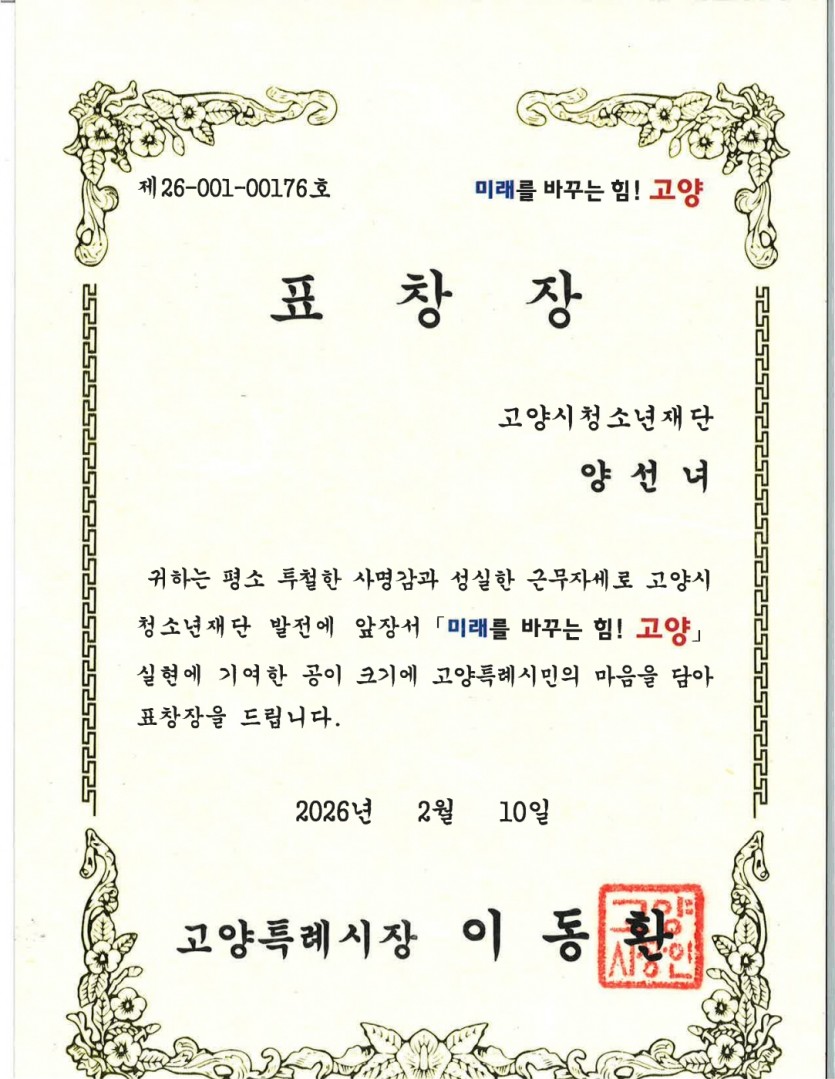 제26-001-00176호
미래를 바꾸는 힘! 고양
표 창 장
고양시청소년재단
양 선 녀
귀하는 평소 투철한 사명감과 성실한 근무자세로 고양시
청소년재단 발전에 앞장서 「미래를 바꾸는 힘! 고양」
실현에 기여한 공이 크기에 고양특례시민의 마음을 담아
표창장을 드립니다.
2026년 2월 10일
고양특례시장 이 동 환
고양
시장인